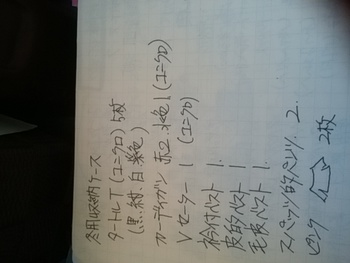 冬用収納ケース
タートルT(ユニクロ)5枚
(黒.紺.白.紫色)
カーディガン 赤2.桃色1(ユニクロ)
Vセーター 1 (ユニクロ)
衿付ベスト 1.
皮的ベスト 1
毛皮ベスト 1.
スパッツ的パンツ. 2.
ピンク 2枚